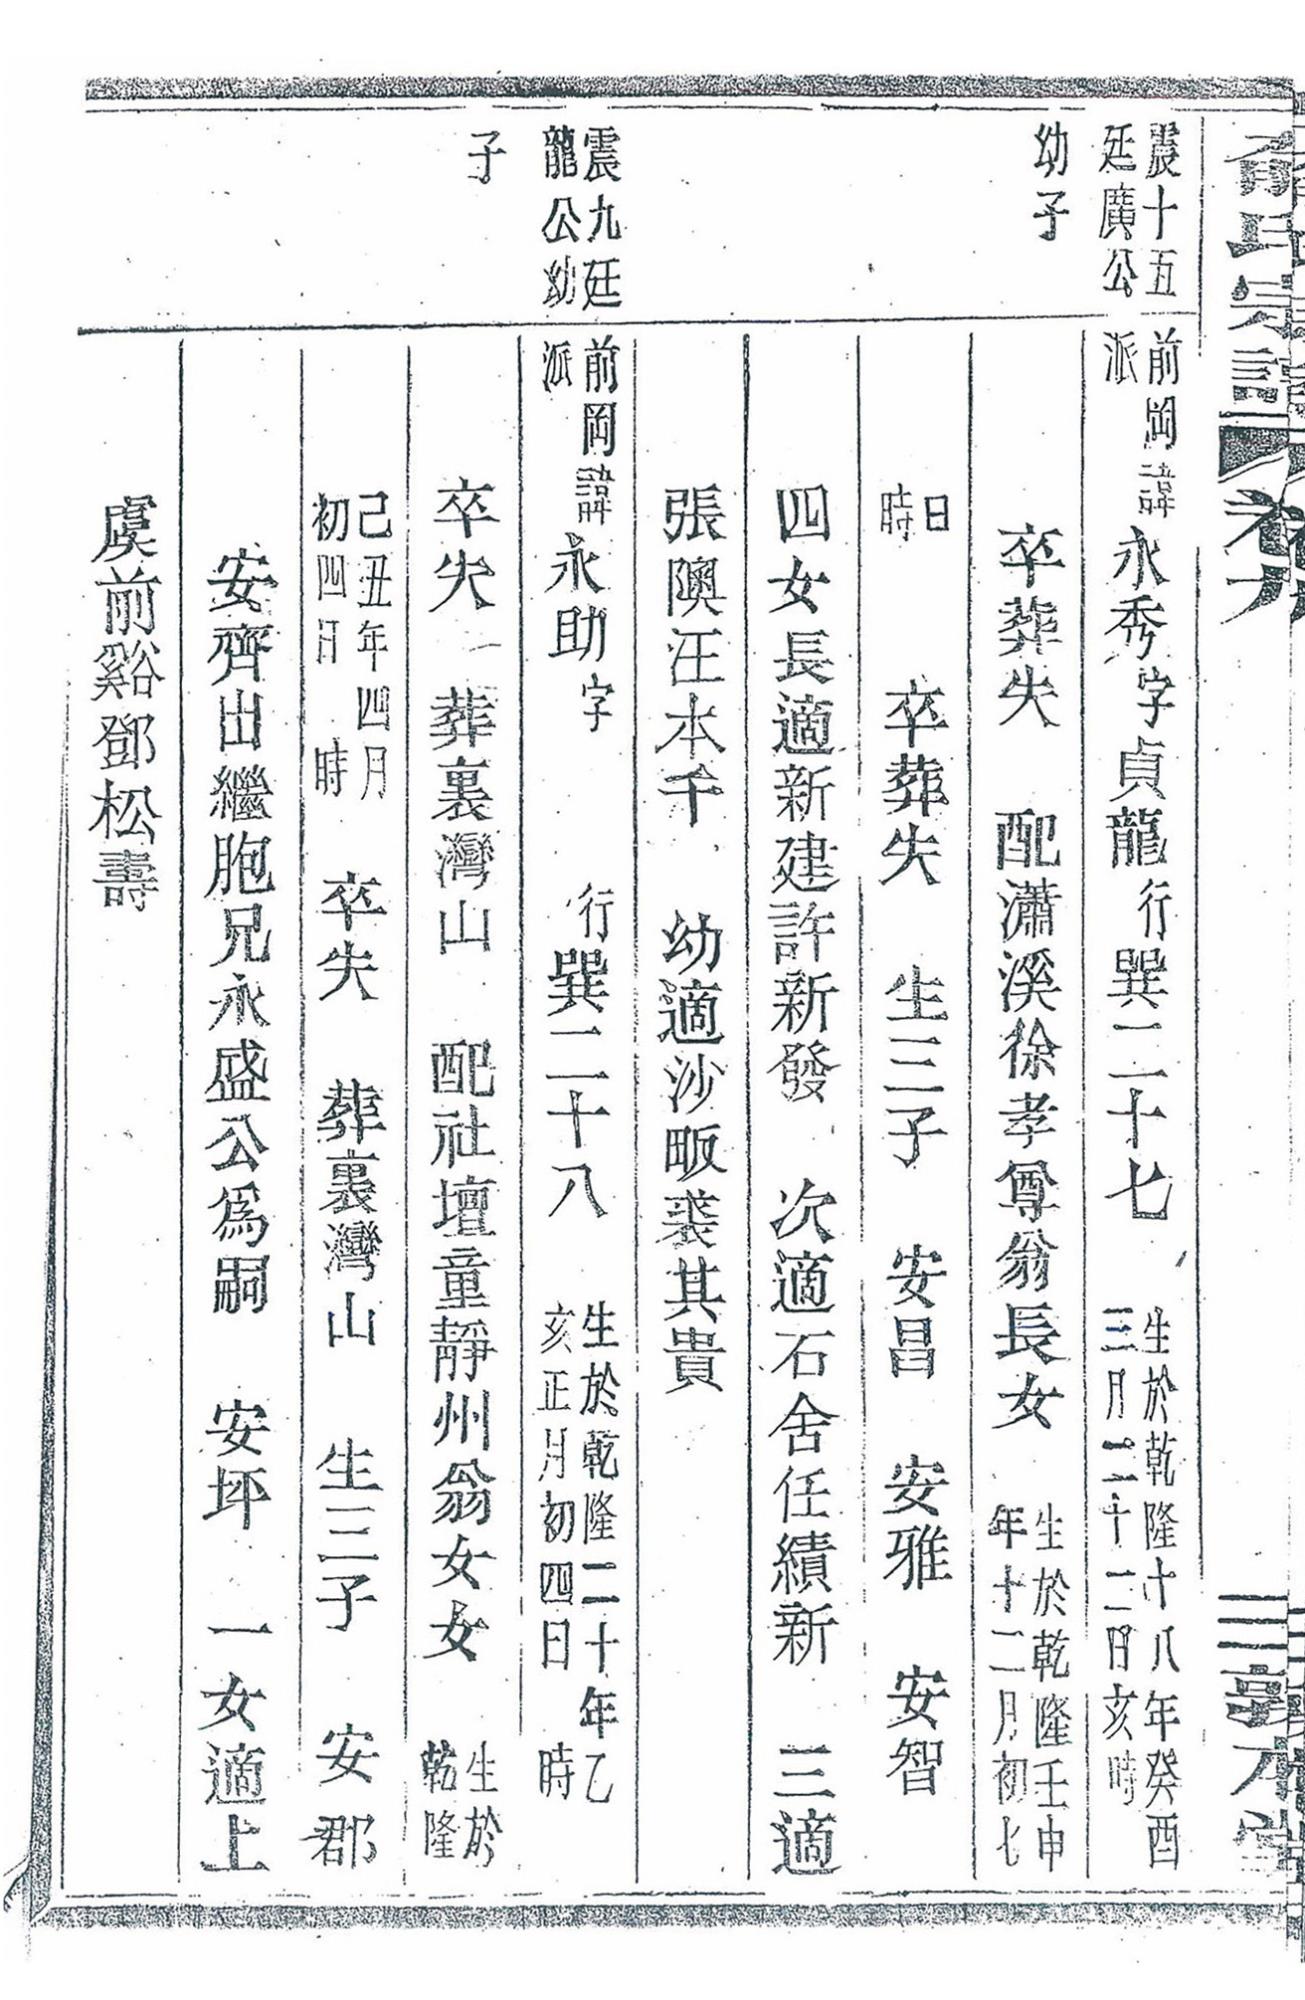 氏宗譜 卷九 三 敦本堂
震十五
廷廣公
幼子
前岡
派
諱永秀字貞龍行巽二十七
生於乾隆十八年癸酉
三月二十二日亥時
卒葬失 配瀟溪徐孝尊翁長女
生於乾隆壬申
年十二月初七
日
時
卒葬失 生三子 安昌 安雅 安智
四女長適新建許新發 次適石舍任績新 三適
張隩汪本千 幼適沙畈裘其貴
震九廷
龍公幼
子
前岡
派
諱永助字 行巽二十八
生於乾隆二十年乙
亥正月初四日 時
卒失 葬裏灣山 配社壇童靜州翁女女
生於
乾隆
己丑年四月
初四日 時
卒失 葬裏灣山 生三子 安郡
安齊出繼胞兄永盛公為嗣 安坏 一女適上
虞前谿鄧松壽